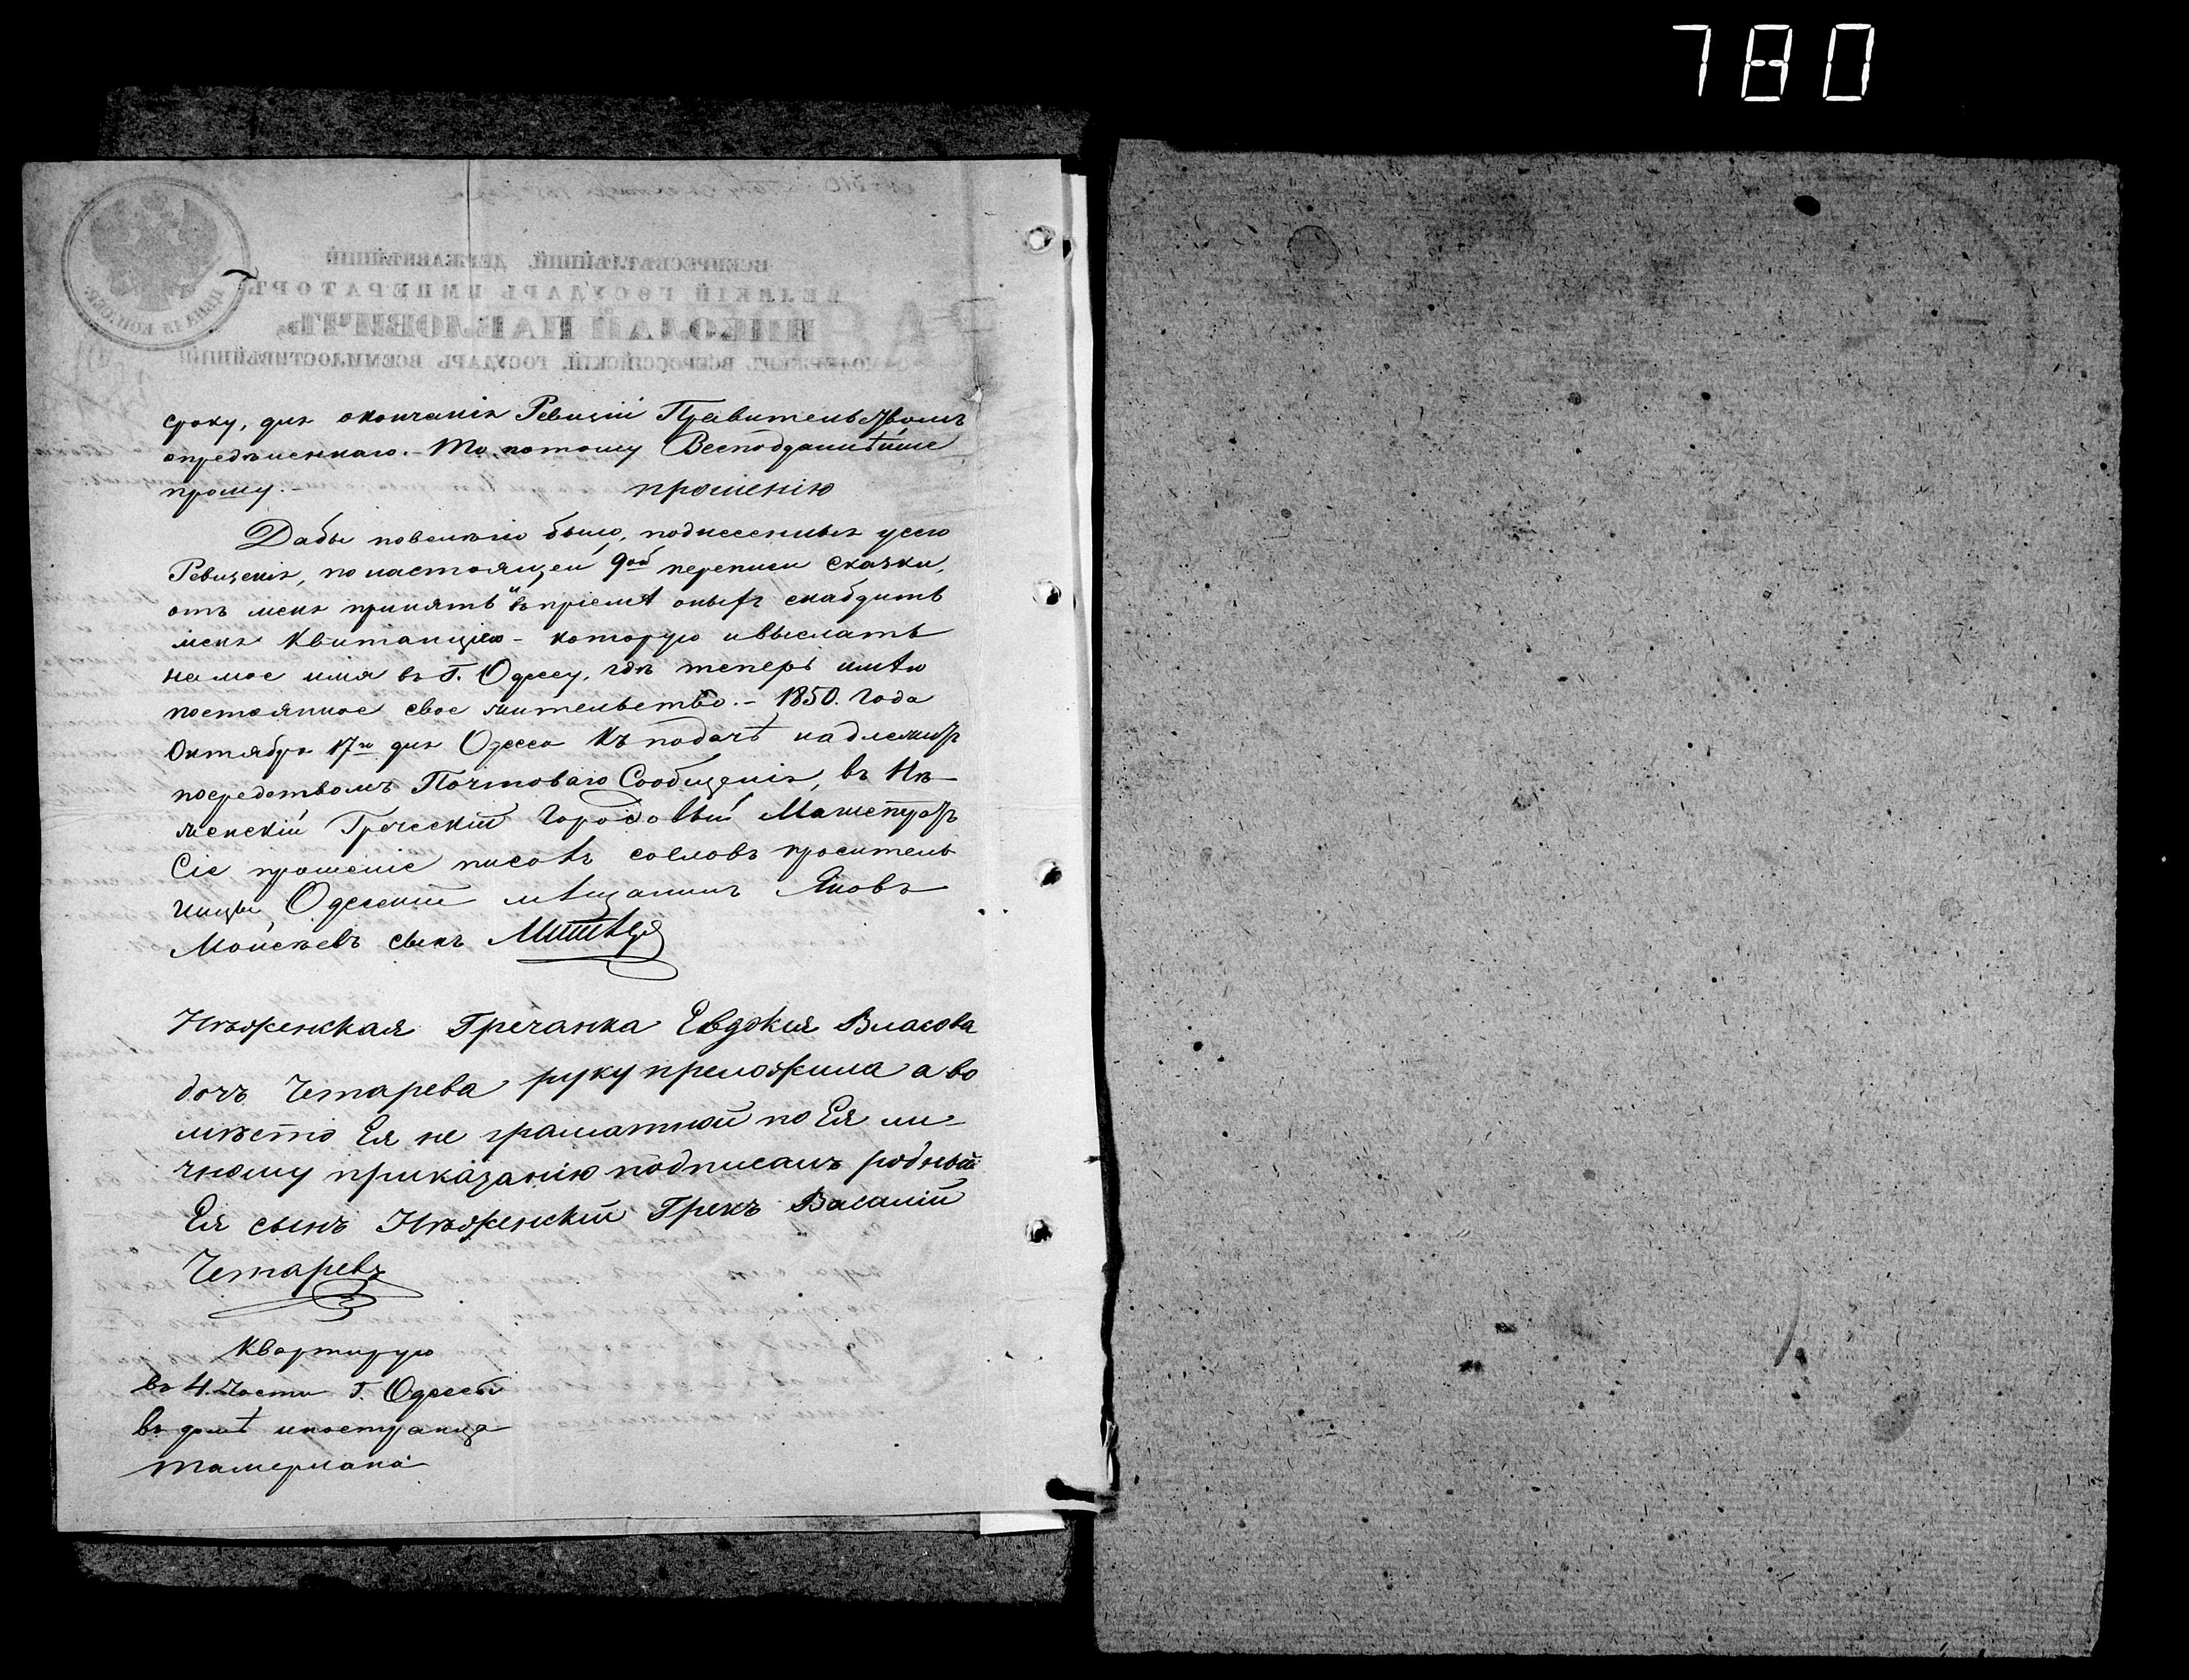 780
ЦѢНА 15 КОПѢЕК.
ВСЕПРЕСВѢТЛѢЙШІЙ, ДЕРЖАВНѢЙШІЙ
ВЕЛИКІЙ ГОСУДАРЬ ИМПЕРАТОРЪ
НИКОЛАЙ ПАВЛОВИЧЪ,
САМОДЕРЖЕЦЪ ВСЕРОССІЙСКІЙ, ГОСУДАРЬ ВСЕМИЛОСТИВѢЙШІЙ
сроку, для окончанія Ревизіи Правительствомъ
опредѣленнаго. - То, потому Всеподданнѣйше
прошу. - прошенію
Дабы повелѣно было, поднесенныя усею
Ревизскія, по настоящей 9ой переписи сказки,
отъ меня принять въ пріемѣ оныхъ снабдить
меня Квитанціею - которую и выслать
на мое имя въ Г. Одессу, гдѣ теперь имѣю
постоянное свое жительство. - 1850. Года
Октября 17го дня Одесса Къ подачѣ надлежитъ
посредствомъ Почтоваго Сообщенія, въ Нѣ-
женскій Греческій Городовый Магистратъ
Сіе прошеніе писалъ со словъ проситель
ницы Одесскій мѣщанинъ Яковъ
Мойсѣевъ сынъ
Нѣженская Гречанка Евдокія Власова
дочъ Четарева руку преложила а во
мѣсто Ея не граматной по Ея ли-
чному приказанію подписалъ родный
Ея сынъ Нѣженскій Грекъ Василій
Четаревъ
Квартирую
въ 4. Части Г. Одессы
въ домѣ иностранца